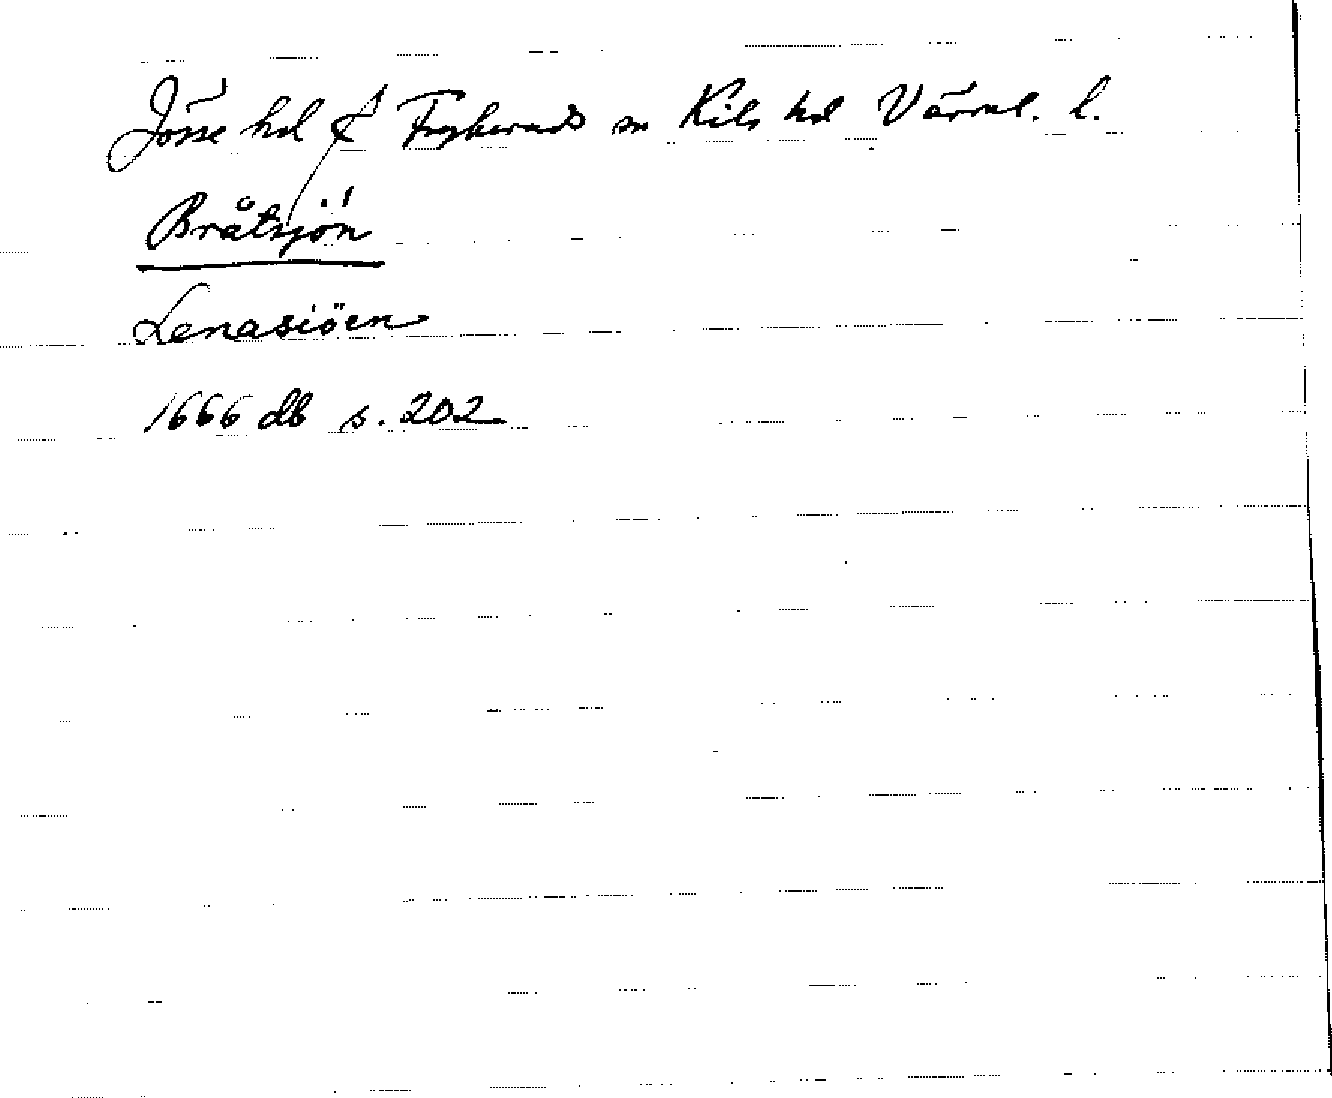 Jösse hd & Frykeruds sn Kils hd Värml. l.
Bråtsjön
Lenasiöen
1666 db s. 202